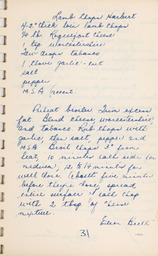 Lamb Chops Herbert
4-2" thick loin lamb chops
¼ lb Roquefort cheese
1 tsp Worcestershire
few drops tabasco
1 clove garlic - cut
salt
pepper
M.S.A (accent
Preheat broiler. Trim excess
fat. Blend cheese, worcestershire,
and tabasco. Rub chops with
garlic, then salt, pepper and
MSA. Broil chops 3" from
heat, 10 minutes each side for
medium, 12 to 14 minutes for
well done. About five minutes
before they're done, spread
entire surface of each chop
with 2 tbsp of cheese
mixture.
31